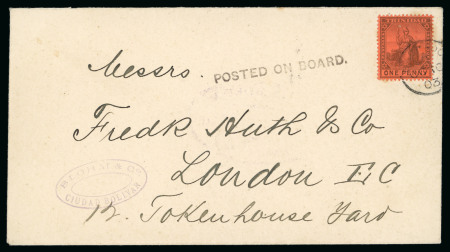 Messrs.
POSTED ON BOARD.
ONE PENNY
03
Fredk Huth & Co
London E C
12. Tokenhouse Yard
CIUDAD BOLIVAR